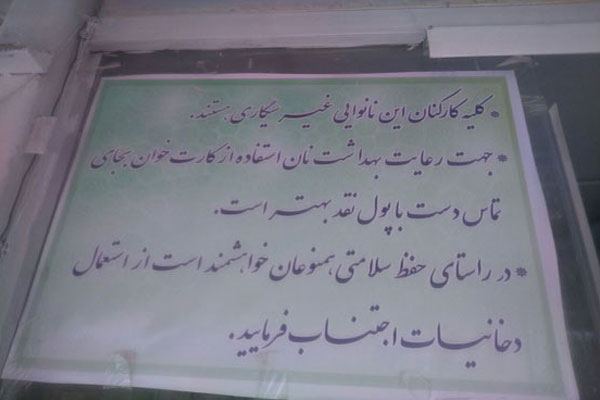 * کلیه کارکنان این نانوایی غیر سیگاری هستند.
* جهت رعایت بهداشت نان استفاده از کارت خوان بجای
تماس دست با پول نقد بهتر است.
* در راستای حفظ سلامتی همنوعان خواهشمند است از استعمال
دخانیات اجتناب فرمایید.